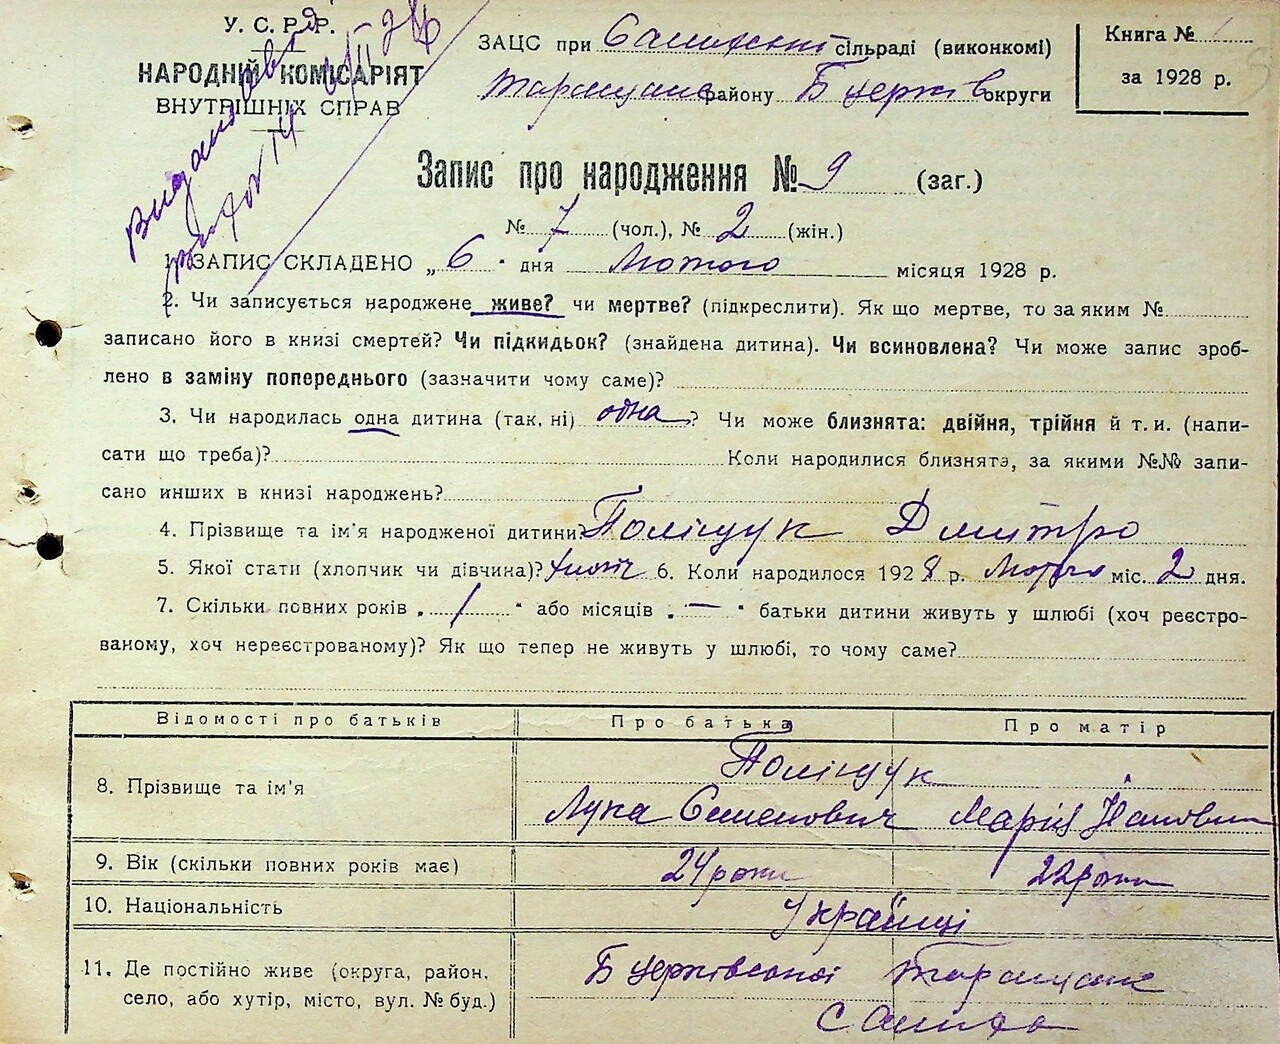 У. С. Р. Р.
НАРОДНІЙ КОМІСАРІЯТ
ВНУТРІШНІХ СПРАВ
Видано
ЗАЦС при сільраді (виконкомі)
Таращанс району Б церків округи
Книга №
за 1928 р.
Запис про народження № 9 (заг.)
№ 7 (чол.), № 2 (жін.)
1. ЗАПИС СКЛАДЕНО „ 6 " дня Лютого місяця 1928 р.
2. Чи записується народжене живе? чи мертве? (підкреслити). Як що мертве, то за яким №
записано його в книзі смертей? Чи підкидьок? (знайдена дитина). Чи всиновлена? Чи може запис зроб-
лено в заміну попереднього (зазначити чому саме)?
3. Чи народилась одна дитина (так, ні) одна ? Чи може близнята: двійня, трійня й т. и. (напи-
сати що треба)? Коли народилися близнята, за якими №№ запи-
сано инших в книзі народжень?
4. Прізвище та ім'я народженої дитини? Поліщук Дмитро
5. Якої стати (хлопчик чи дівчина)? 6. Коли народилося 192 8 р. Лютого міс. 2 дня.
7. Скільки повних років „ 1 " або місяців „ — " батьки дитини живуть у шлюбі (хоч реєстро-
ваному, хоч нереєстрованому)? Як що тепер не живуть у шлюбі, то чому саме?
Відомості про батьків Про батька Про матір
8. Прізвище та ім'я Поліщук
Лука Семенович Марія
9. Вік (скільки повних років має) 24 роки 22 роки
10. Національність Українці
11. Де постійно живе (округа, район, Б церківської Таращанс
село, або хутір, місто, вул. № буд.)